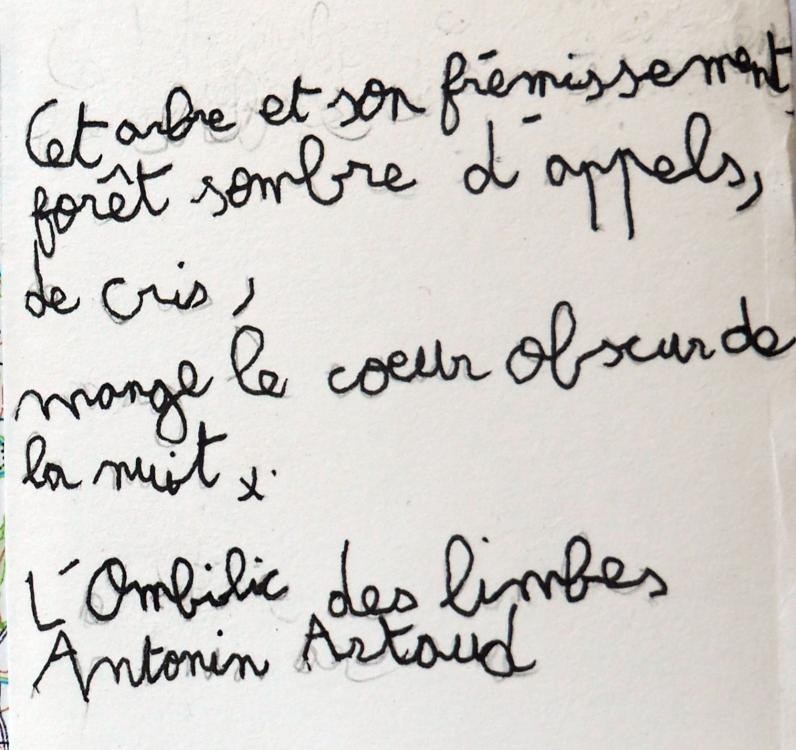 Cet arbre et son frémissement,
forêt sombre d'appels,
de cris,
mange le coeur obscur de
la nuit x.
L'Ombilic des limbes
Antonin Artaud